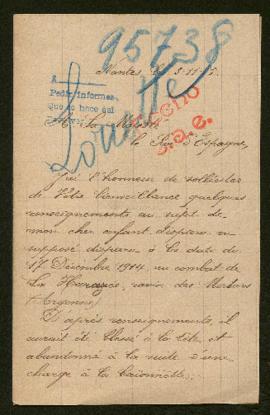 95738
Nantes le 3-11-15
A
Pedir informes
que se hace
Louette
A Sa Majesté
le Roi d'Espagne,
J'ai l'honneur de solliciter
de Votre Bienveillance quelques
renseignements au sujet de
mon cher enfant disparu ou
supposé disparu à la date du
17 Décembre 1914, au combat de
La Harazée, ravin des Meurs
(Argonne)
D'après renseignements, il
aurait été blessé à la tête et
abandonné à la suite d'une
charge à la baïonnette;